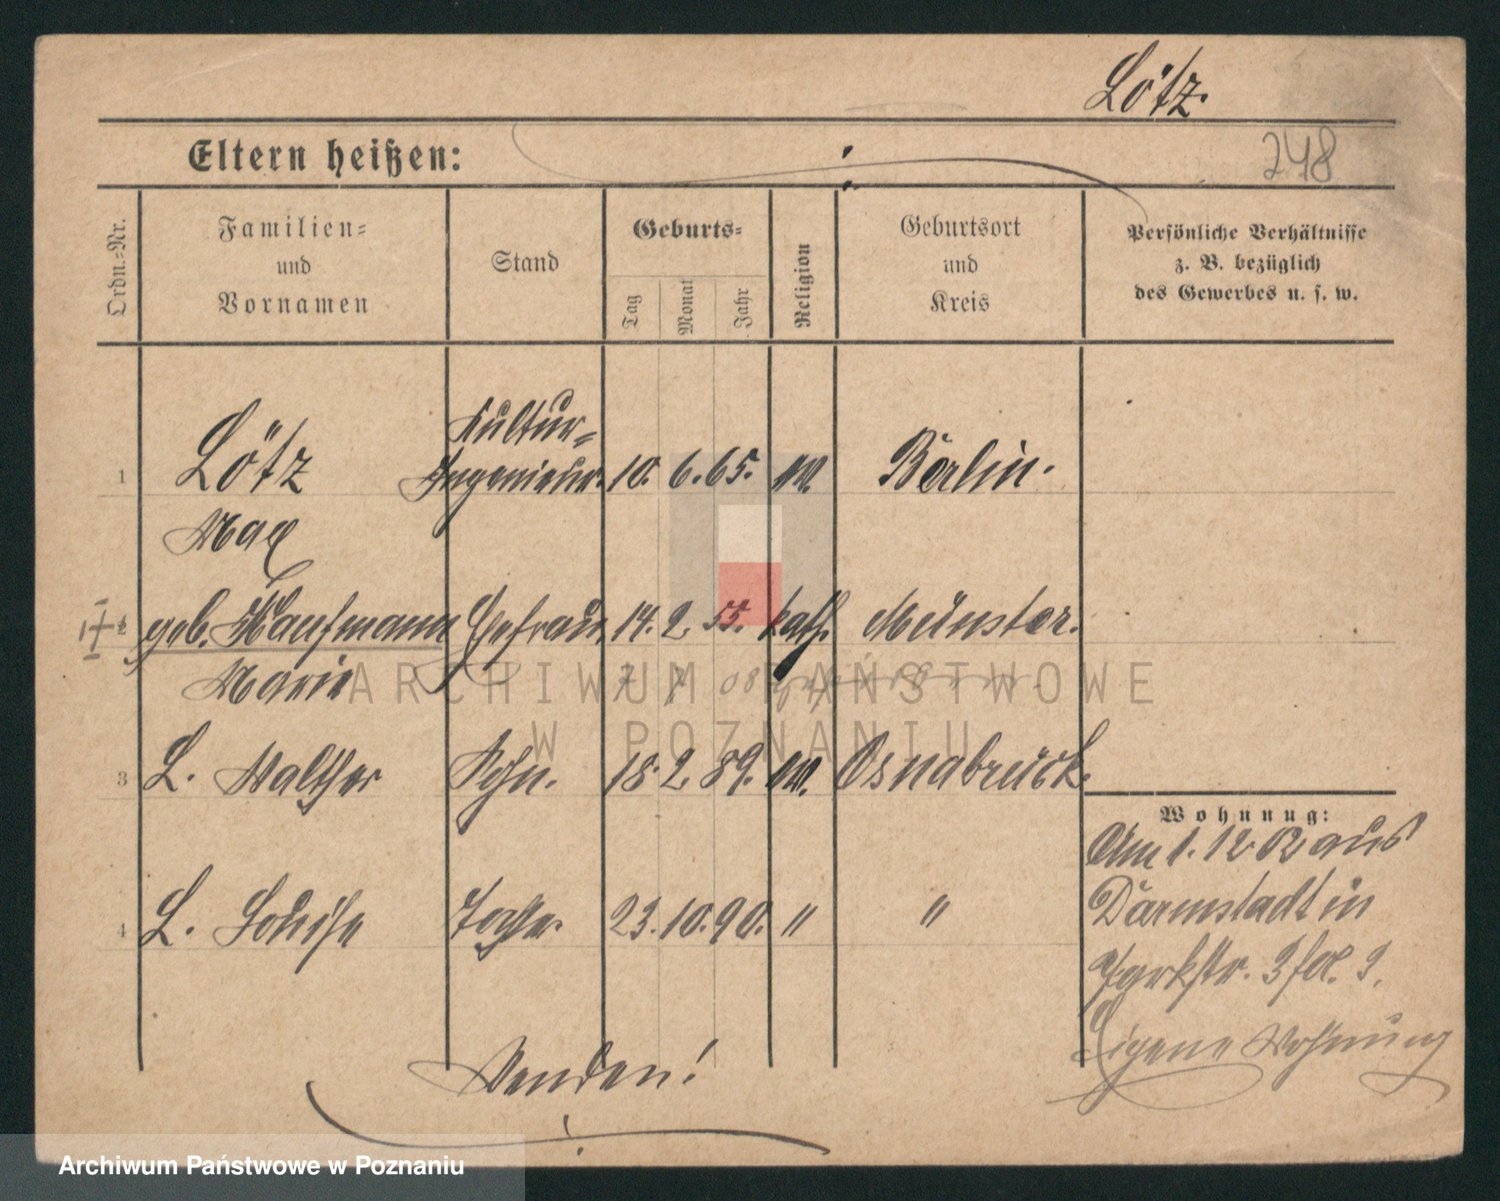 Lötz.
248
Eltern heißen:
Ordn.-Nr.
Familien-
und
Vornamen
Stand
Geburts-
Tag
Monat
Jahr
Religion
Geburtsort
und
Kreis
Persönliche Verhältnisse
z. B. bezüglich
des Gewerbes u. s. w.
1 Lötz Kultur-
Ingenieur. 10. 6. 65. ev. Berlin.
Max
2 geb. Kaufmann Ehefrau 14. 2. 55. kath. Münster.
Marie
7 7 08
3 L. Walther Sohn. 18. 2. 89. ev. Osnabrück.
4 L. Louise Tochter 23. 10. 90. " "
Wohnung:
Am 1. 12 02 aus
Darmstadt in
Parkstr. 3
Eigene Wohnung
Wenden!
ARCHIWUM PAŃSTWOWE
W POZNANIU
Archiwum Państwowe w Poznaniu